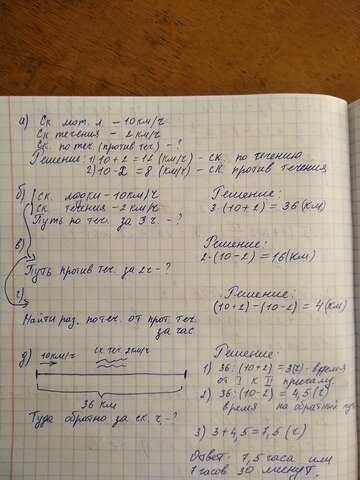 а) Ск мот. л – 10 км/ч
Ск течения – 2 км/ч
Ск по теч. (против теч.) – ?
Решение: 1) 10 + 2 = 12 (км/ч) – ск. по течению
2) 10 - 2 = 8 (км/ч) – ск. против течения
б) Ск. лодки – 10 км/ч
Ск течения – 2 км/ч
Путь по теч. за 3 ч. – ?
Решение:
3·(10+2) = 36 (км)
в)
Путь против теч. за 2 ч – ?
Решение
2·(10-2) = 16 (км)
г)
Найти раз. по теч. от прот. теч.
за час.
Решение:
(10+2)-(10-2) = 4 (км)
д) 10 км/ч ск теч. 2 км/ч
36 км
Туда обратно за ск. ч – ?
Решение:
1) 36:(10+2) = 3 (ч) – время
от I к II причалу.
2) 36:(10-2) = 4,5 (ч)
время на обратный путь
3) 3 + 4,5 = 7,5 (ч)
Ответ: 7,5 часа или
7 часов 30 минут.